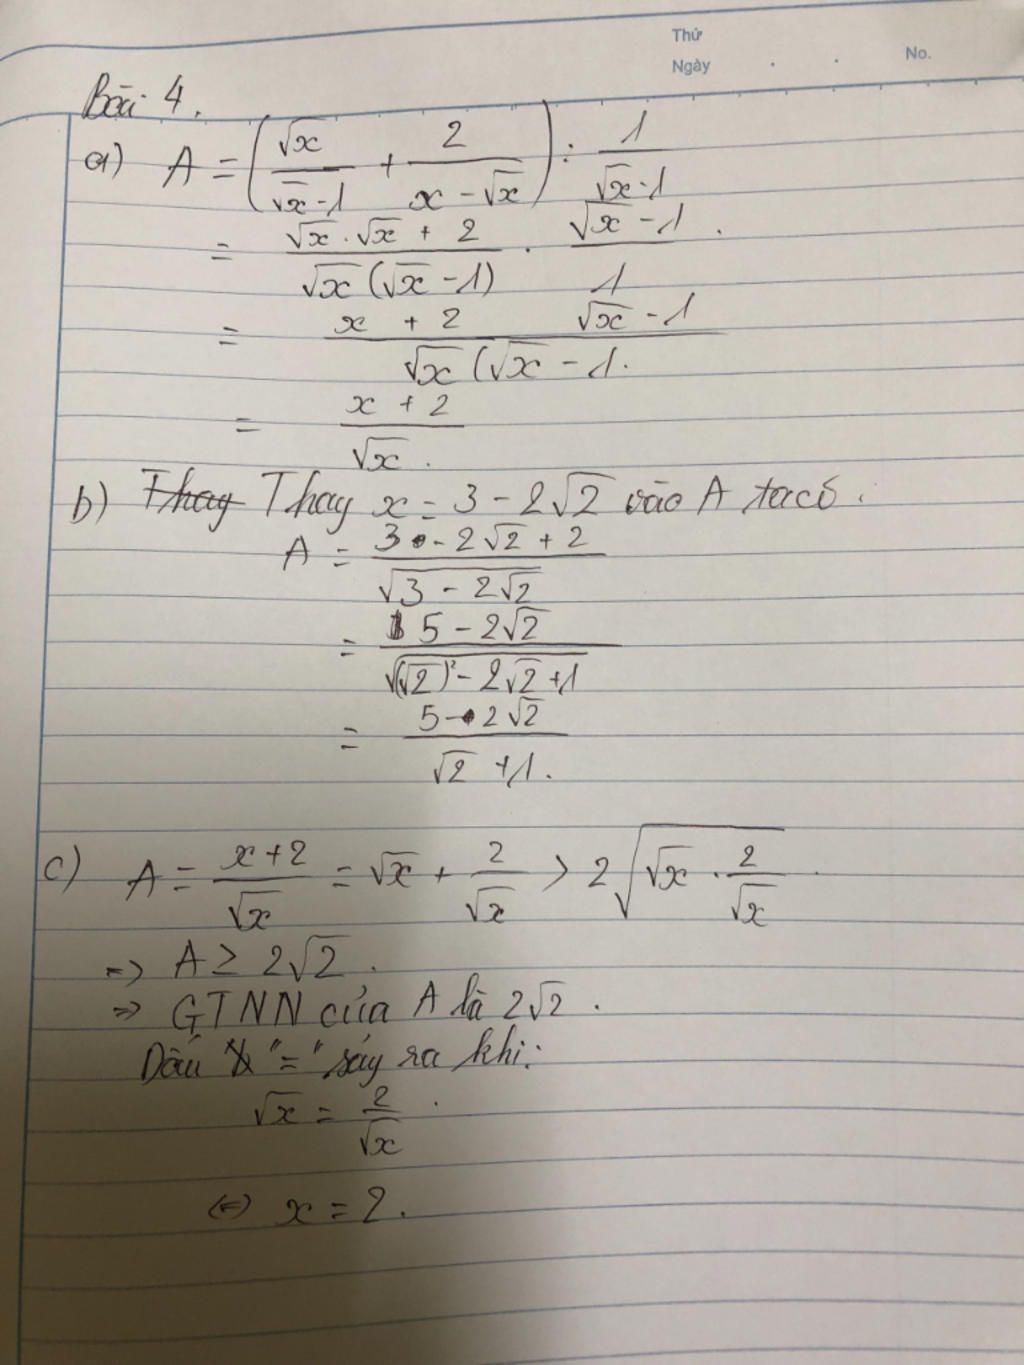 Thứ
Ngày . . No.
Bài 4.
a) A = (√x/(√x-1) + 2/(x-√x)) : 1/(√x-1)
= (√x.√x + 2)/(√x(√x-1)) . (√x-1)/1.
= (x + 2 √x-1)/(√x(√x-1.
= (x+2)/√x.
b) Thay Thay x = 3 - 2√2 vào A ta có.
A = (3 - 2√2 + 2)/√(3 - 2√2)
= (5 - 2√2)/√((√2)² - 2√2 + 1)
= (5 - 2√2)/(√2 + 1).
c) A = (x+2)/√x = √x + 2/√x > 2√(√x . 2/√x).
=> A ≥ 2√2.
=> GTNN của A là 2√2.
Dấu "=" sảy ra khi:
√x = 2/√x.
(=) x = 2.